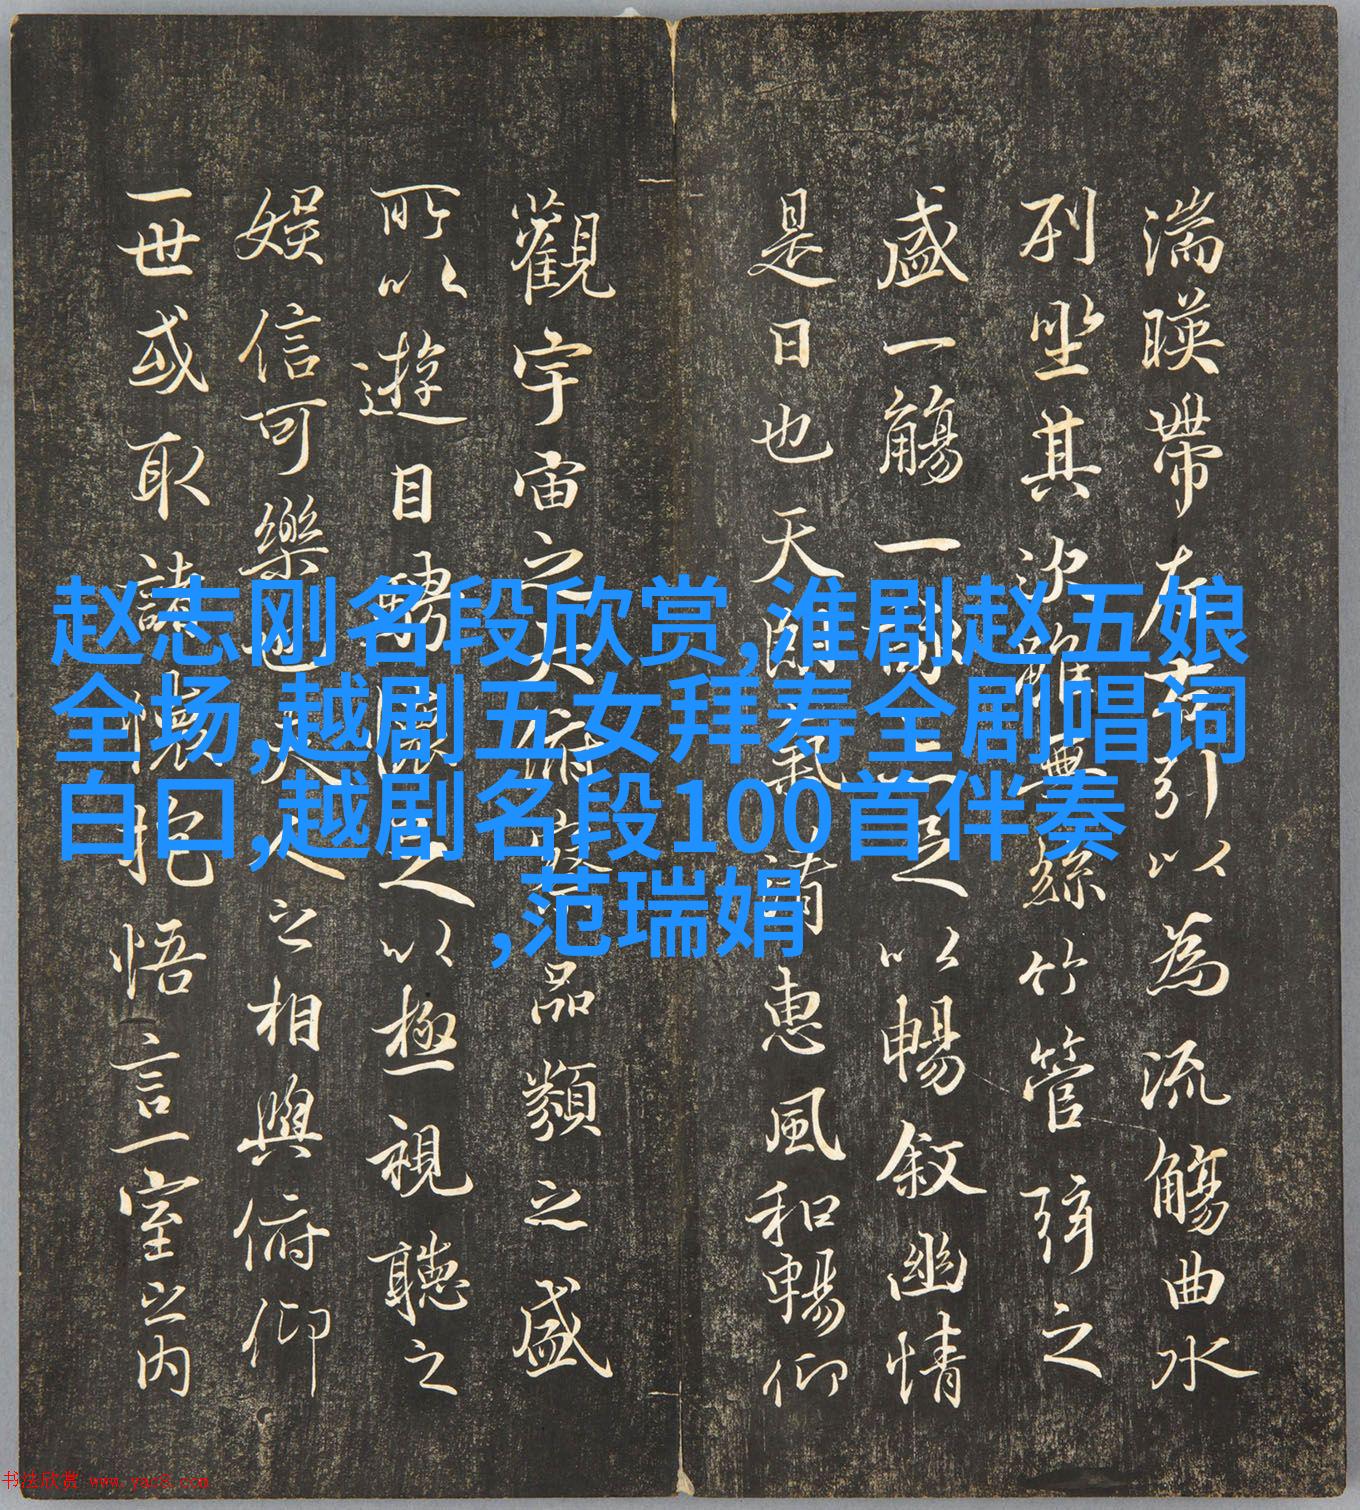 赵志刚名段欣赏,淮剧赵五娘
全场,越剧五女拜寿全剧唱词
白口,越剧名段100首伴奏
,范瑞娟
湍暎帶左右引以為流觴曲水
列坐其次雖無絲竹管弦之
盛一觴一詠亦足以暢敘幽情
是日也天朗氣清惠風和暢仰
觀宇宙之大俯察品類之盛
所以遊目騁懷足以極視聽之
娛信可樂也夫人之相與俯仰
一世或取諸懷抱悟言一室之内
书法欣赏 www.yac8.com